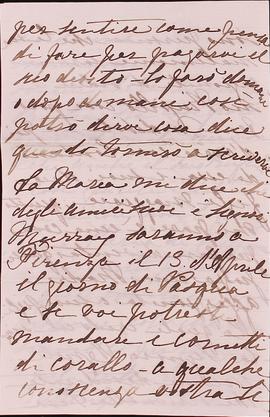 per sentire come pensa
di fare per pagarvi il
suo debito - Lo farò domani
o dopo domani, così
potrò dirvi cosa dice
quando tornerò a scrivervi
La Maria mi dice che
degli amici suoi i Signori
Murray saranno a
Firenze il 13 Aprile
il giorno di Pasqua
e se voi potreste
mandare i cornetti
di corallo - a qualche
conoscenza vostra li